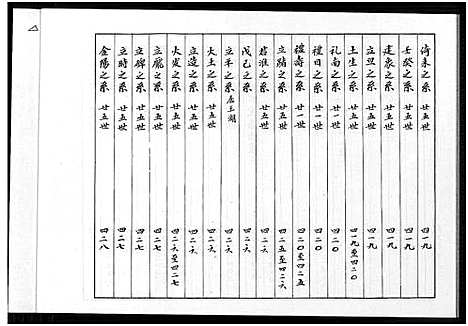 倚未之系 廿五世 四一九
壬癸之系 廿五世 四一九
建泉之系 廿五世 四一九
立丑之系 廿五世 四一九
土生之系 廿五世 四一九至四二0
礼南之系 廿一世 四二0
禮日之系 廿一世 四二0
禮壽之系 廿一世 四二0至四二五
立賭之系 廿五世 四二五至四二六
君淮之系 廿五世 四二六
戊己之系 廿五世 四二六
立羊之系 居玉湖 四二六
大土之系 廿五世 四二六
立造之系 廿五世 四二六
火炭之系 廿五世 四二六至四二七
立龐之系 廿五世 四二七
立碑之系 廿五世 四二七
立時之系 廿五世 四二七
金陽之系 廿五世 四二八